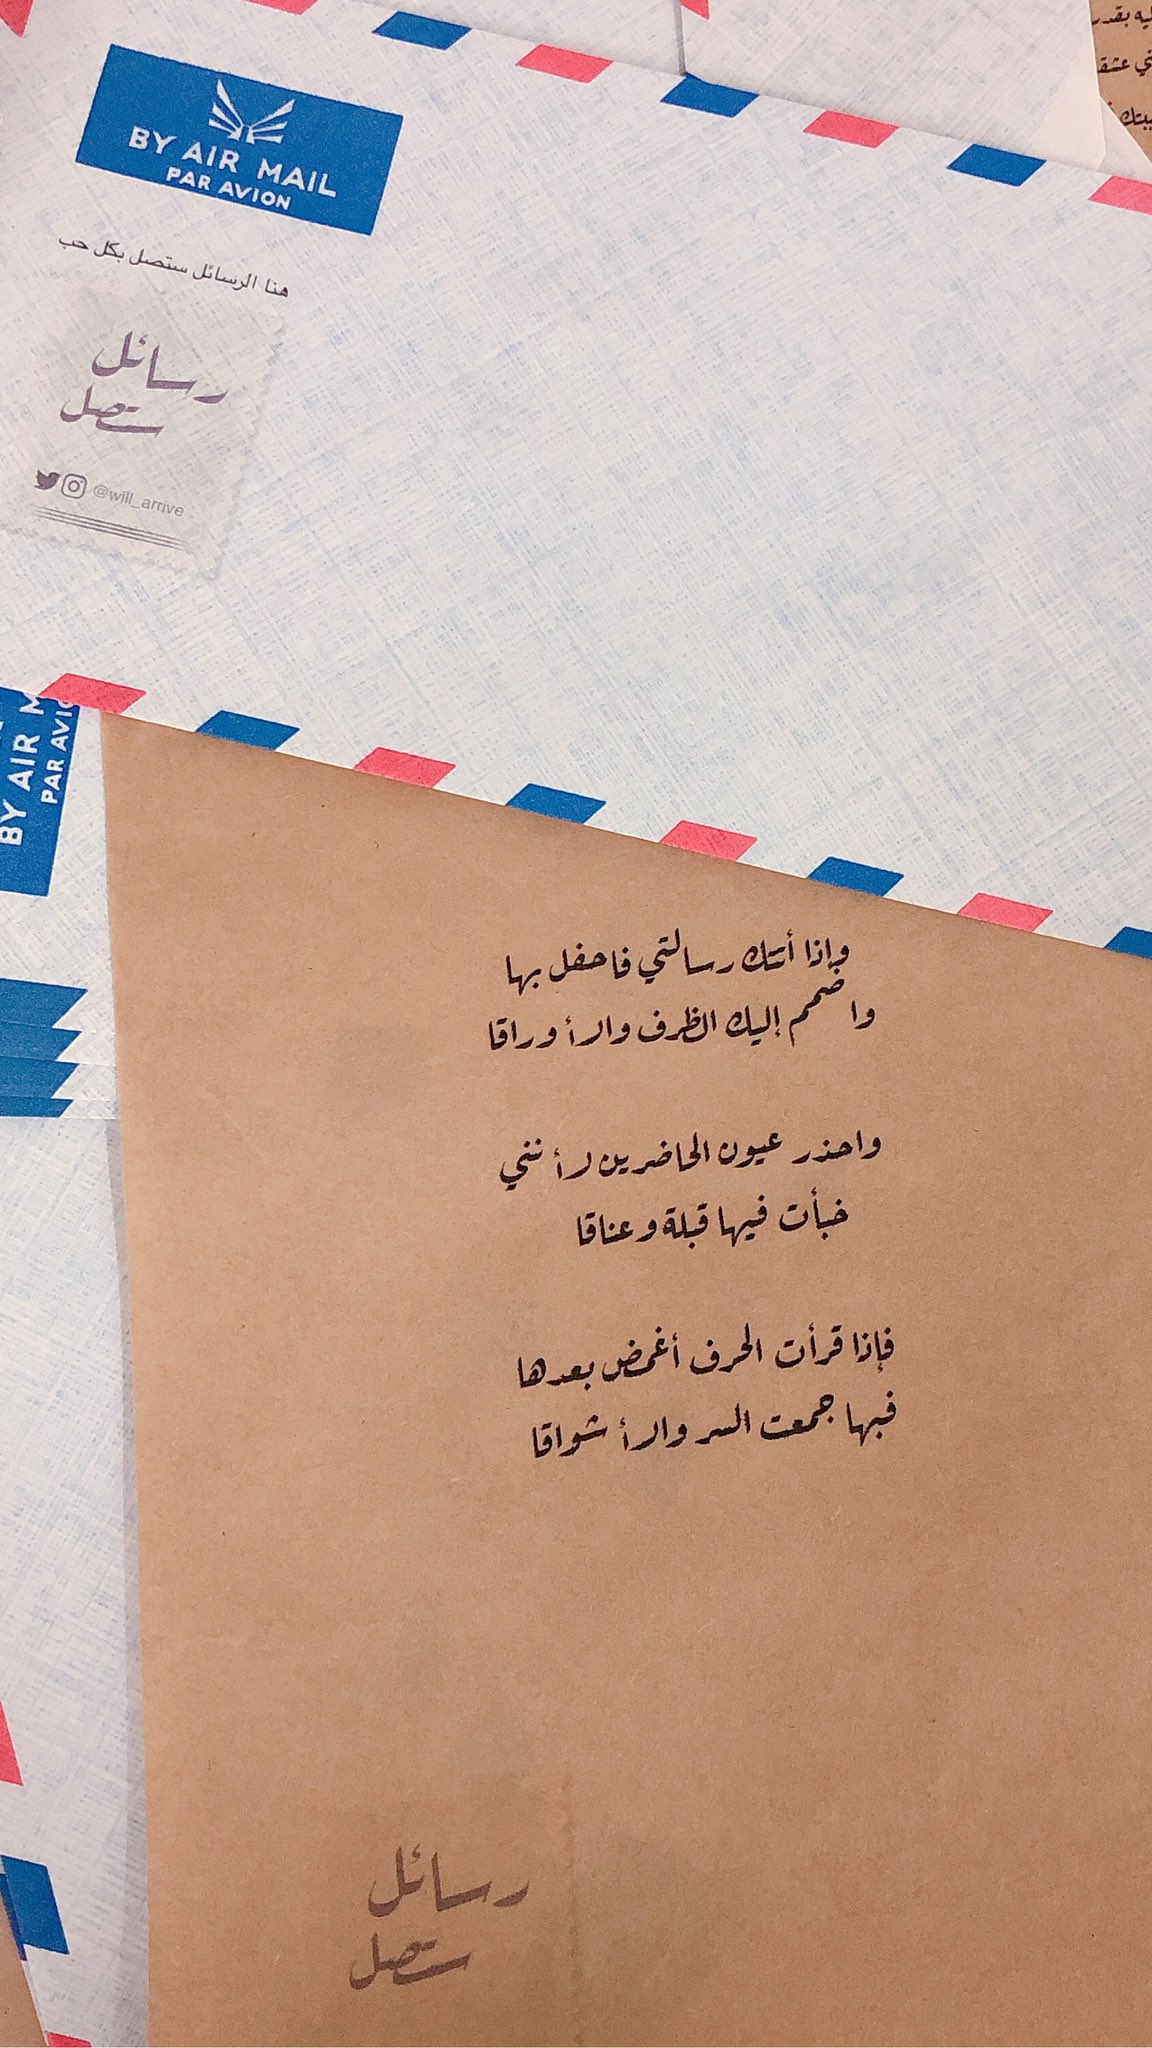 BY AIR MAIL
PAR AVION
هنا الرسائل ستصل بكل حب
رسائل
ستصل
@will_arrive
BY AIR M
PAR AVIO
وإذا أتتك رسالتي فاحفل بها
واضمم إليك الظرف والأوراقا
واحذر عيون الحاضرين لأنني
خبأت فيها قبلة وعناقا
فإذا قرأت الحرف أغمض بعدها
فبها جمعت السر والأشواقا
رسائل
ستصل